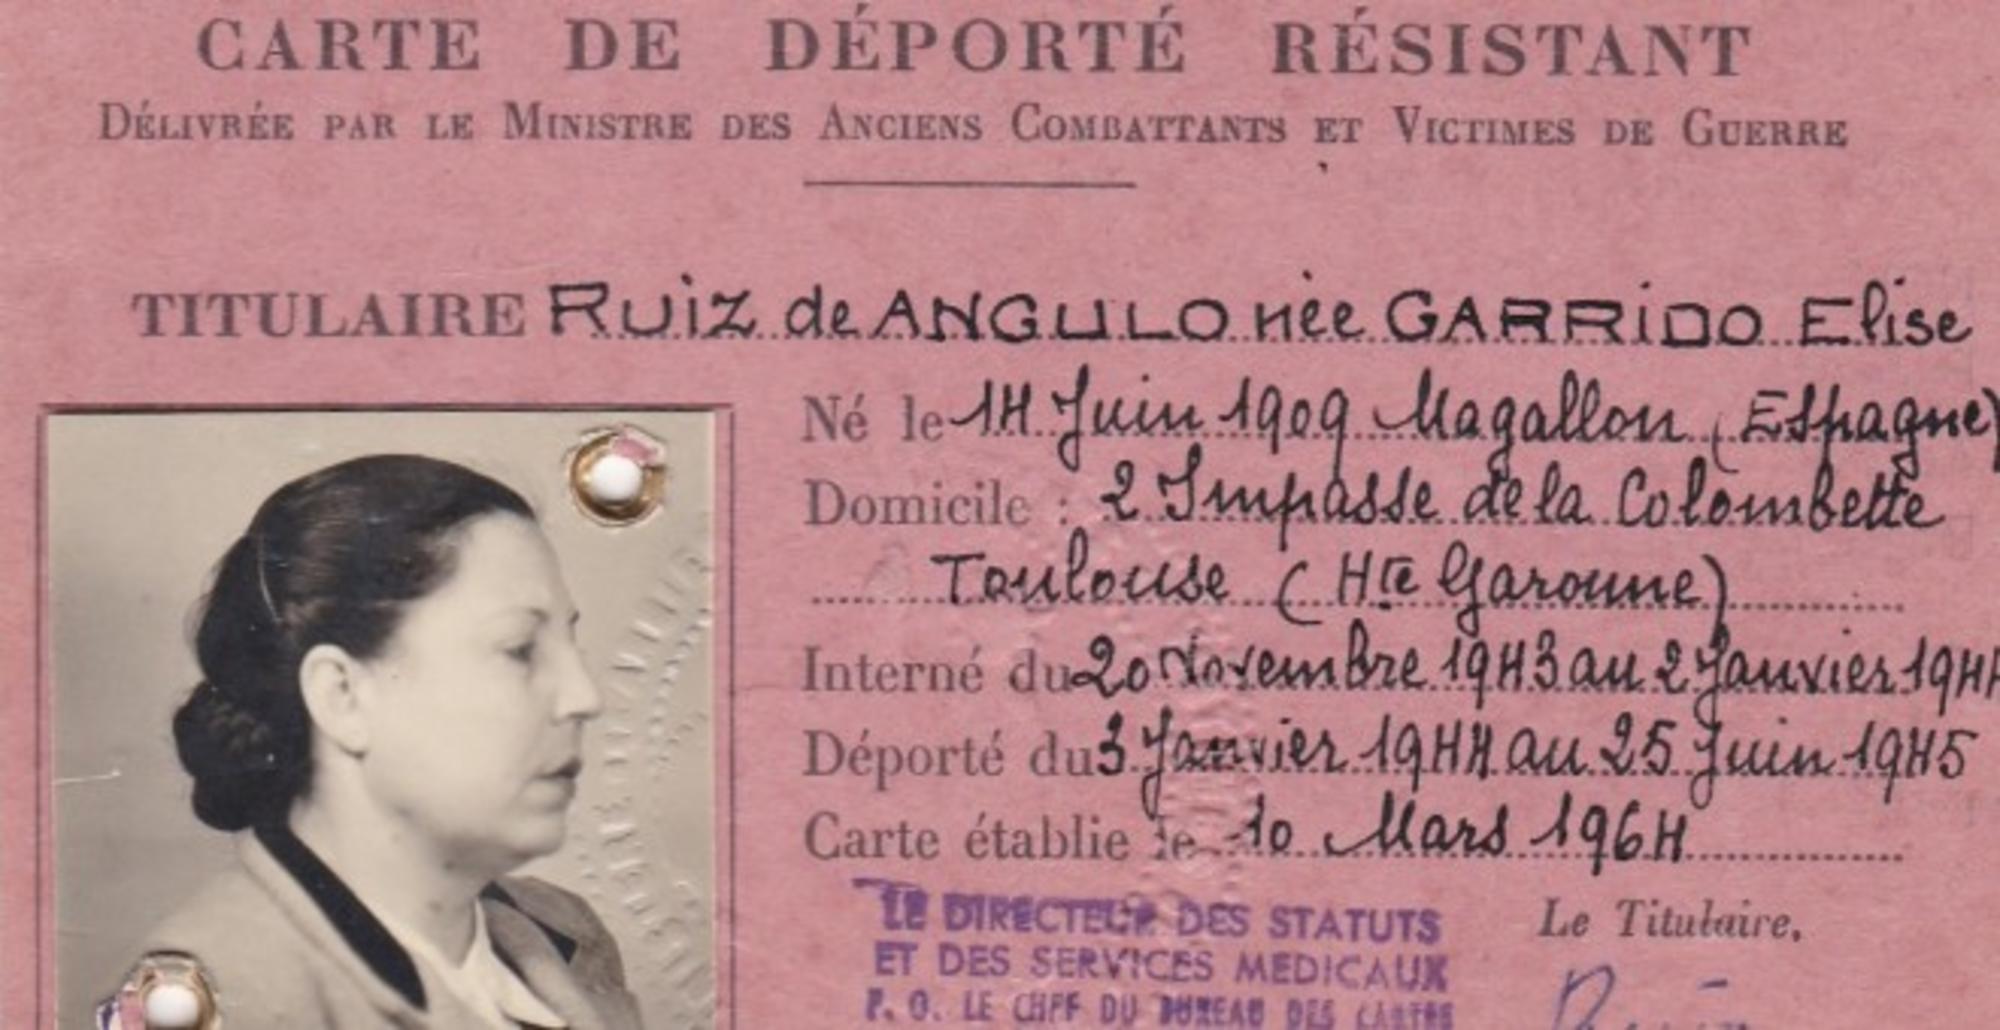 CARTE DE DÉPORTÉ RÉSISTANT
DÉLIVRÉE PAR LE MINISTRE DES ANCIENS COMBATTANTS ET VICTIMES DE GUERRE
TITULAIRE RUIZ de ANGULO née GARRIDO Elise
Né le 14 Juin 1909 Magallon (Espagne)
Domicile : 2 Impasse de la Colombette
Toulouse (Hte Garonne)
Interné du 20 Novembre 1943 au 2 Janvier 1944
Déporté du 3 Janvier 1944 au 25 Juin 1945
Carte établie le 10 Mars 1964
LE DIRECTEUR DES STATUTS
ET DES SERVICES MEDICAUX
P. O. LE CHEF DU BUREAU DES CARTES
Le Titulaire,